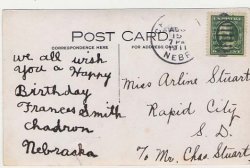 POST CARD
CORRESPONDENCE HERE
NAME AND ADDRESS HERE
AUG
15
7 PM
1911
NEBR
we all wish
you a Happy
Birthday
Frances Smith
Chadron
Nebraska
Miss Arline Stuart
Rapid City
S. D.
To Mr. Chas Stuart